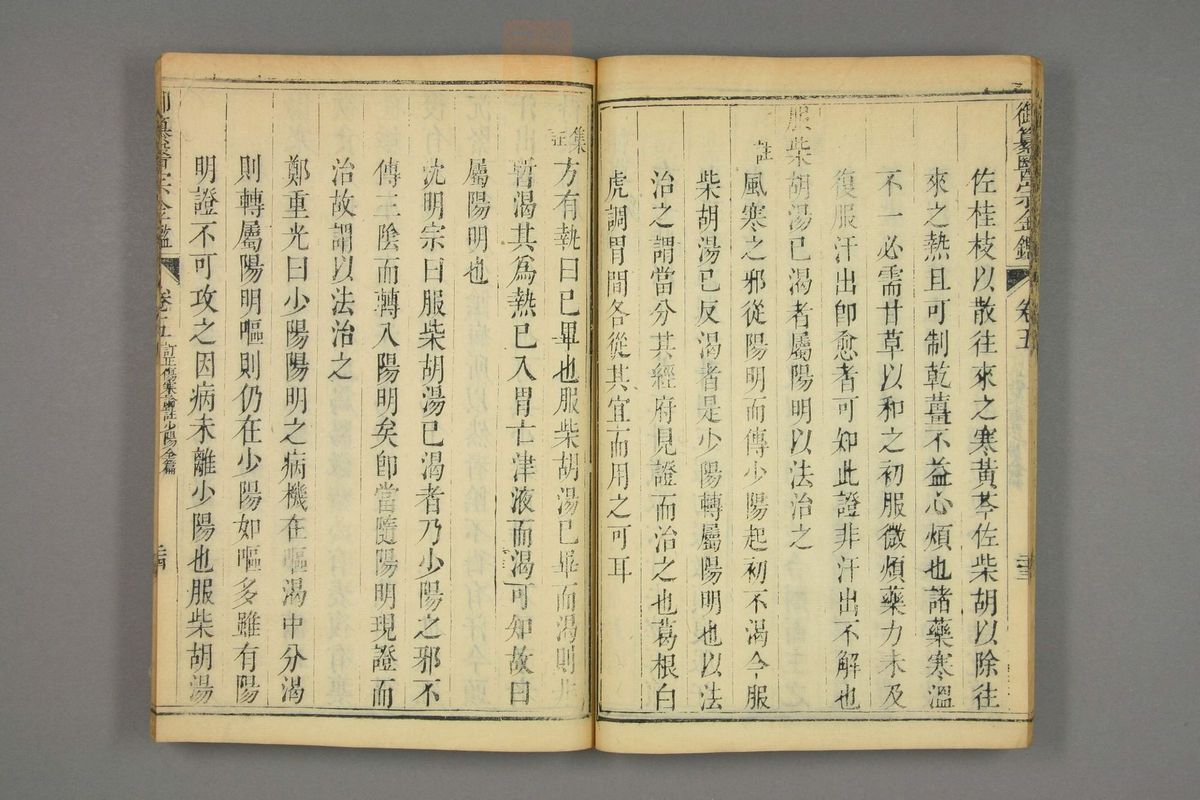 御纂醫宗金鑑
卷五
二十三
佐桂枝以散往來之寒黃芩佐柴胡以除往
來之熱且可制乾薑不益心煩也諸藥寒溫
不一必需甘草以和之初服微煩藥力未及
復服汗出卽愈者可知此證非汗出不解也
服柴胡湯已渴者屬陽明以法治之
註
風寒之邪從陽明而傳少陽起初不渴今服
柴胡湯已反渴者是少陽轉屬陽明也以法
治之謂當分其經府見證而治之也葛根白
虎調胃間各從其宜而用之可耳
集註
方有執曰已畢也服柴胡湯已畢而渴則
暫渴其爲熱已入胃亡津液而渴可知故曰
屬陽明也
沈明宗曰服柴胡湯已渴者乃少陽之邪不
傳三陰而轉入陽明矣卽當隨陽明現證而
治故謂以法治之
鄭重光曰少陽陽明之病機在嘔渴中分渴
則轉屬陽明嘔則仍在少陽如嘔多雖有陽
明證不可攻之因病未離少陽也服柴胡湯
卷五
訂正傷寒論註少陽全篇
二十四